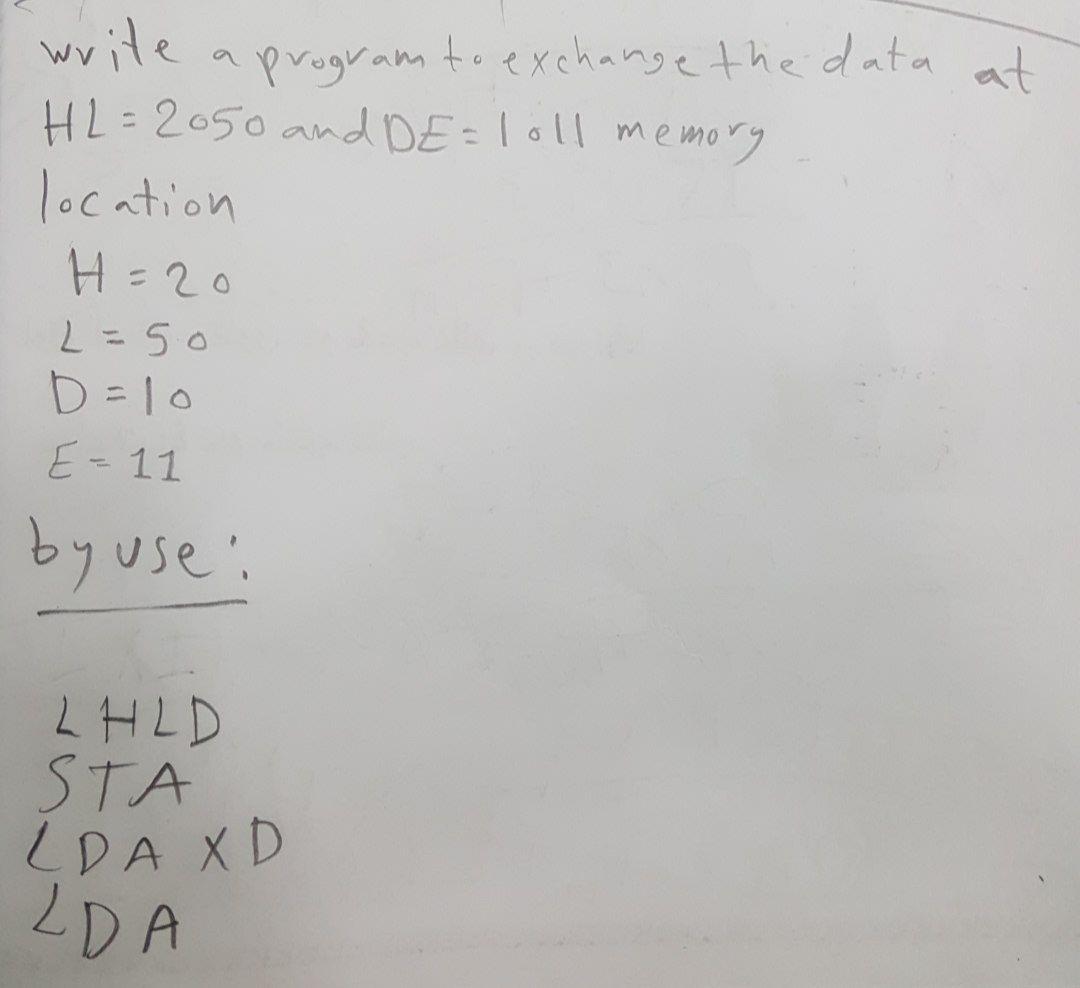 write a program to exchange the data at
HL = 2050 and DE = 1011 memory
location
H = 20
L = 50
D = 10
E = 11
by use:
LHLD
STA
LDA XD
LDA